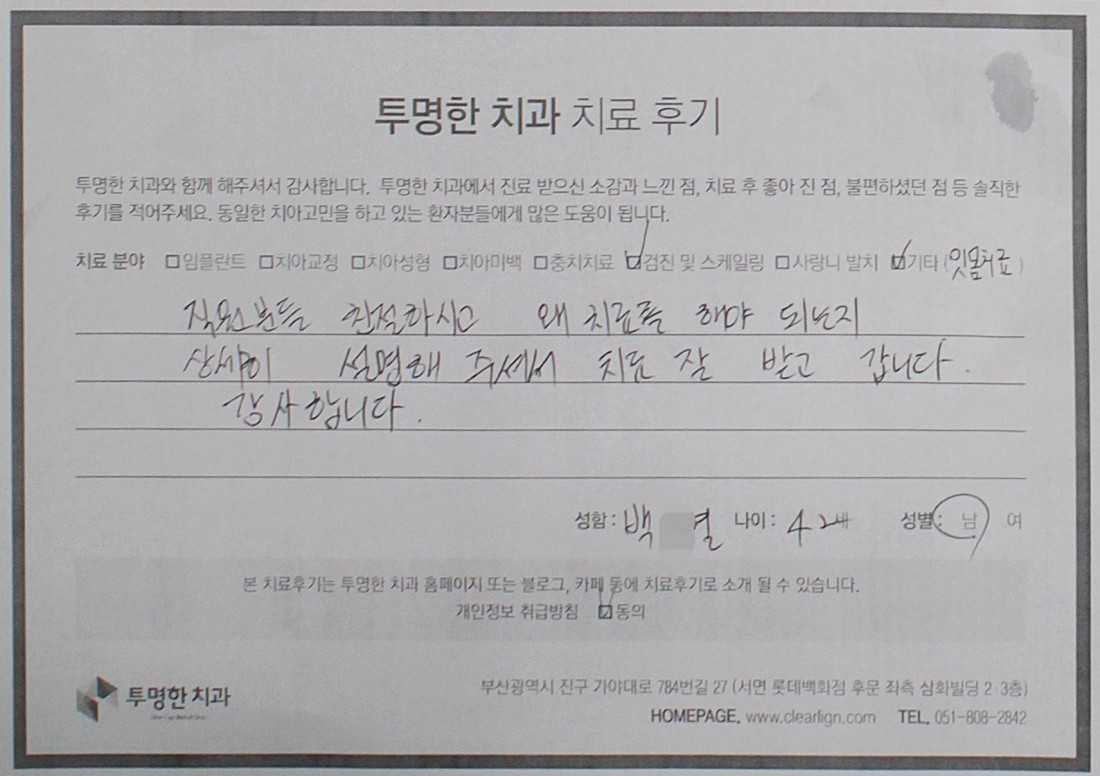 투명한 치과 치료 후기
투명한 치과와 함께 해주셔서 감사합니다. 투명한 치과에서 진료 받으신 소감과 느낀 점, 치료 후 좋아 진 점, 불편하셨던 점 등 솔직한
후기를 적어주세요. 동일한 치아고민을 하고 있는 환자분들에게 많은 도움이 됩니다.
치료 분야 □임플란트 □치아교정 □치아성형 □치아미백 □충치치료 ☑검진 및 스케일링 □사랑니 발치 ☑기타 (잇몸치료)
직원분들 친절하시고 왜 치료를 해야 되는지
상세히 설명해 주셔서 치료 잘 받고 갑니다.
감사합니다.
성함 : 백 열 나이 : 42세 성별 : 남 여
본 치료후기는 투명한 치과 홈페이지 또는 블로그, 카페 등에 치료후기로 소개 될 수 있습니다.
개인정보 취급방침 ☑동의
투명한 치과
부산광역시 진구 가야대로 784번길 27 (서면 롯데백화점 후문 좌측 삼화빌딩 2·3층)
HOMEPAGE. www.clearlign.com TEL. 051-808-2842